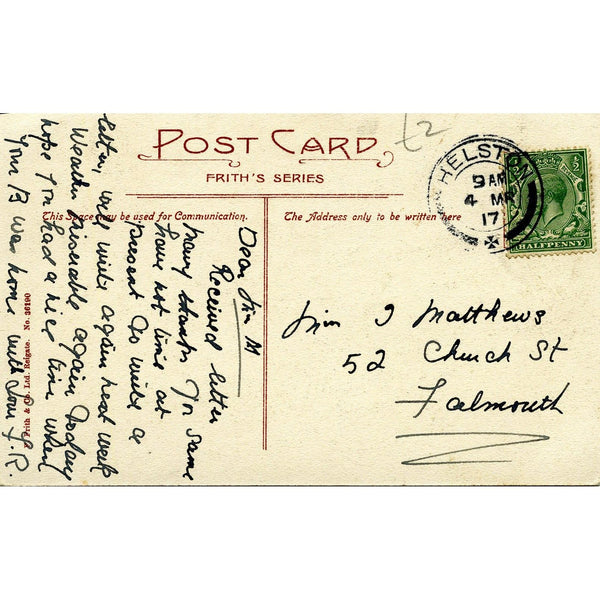 £2
POST CARD
FRITH'S SERIES
This Space may be used for Communication.
The Address only to be written here
HELSTON
9 AM
4 MR
17
HALFPENNY
Miss J Matthews
52 Church St
Falmouth
Dear M
Received letter
many thanks for same
have not time at
present to write a
letter, will write again next week
Weather miserable again today
hope you had a nice time when
your B was home with you J.R.
Frith & Co. Ltd. Reigate. No. 36190